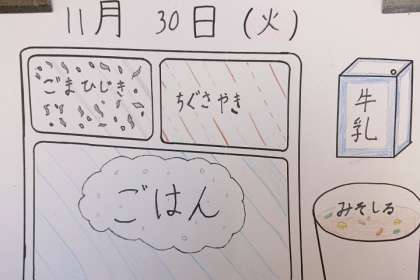 11月 30日 (火)
ごまひじき
ちぐさやき
牛乳
ごはん
みそしる